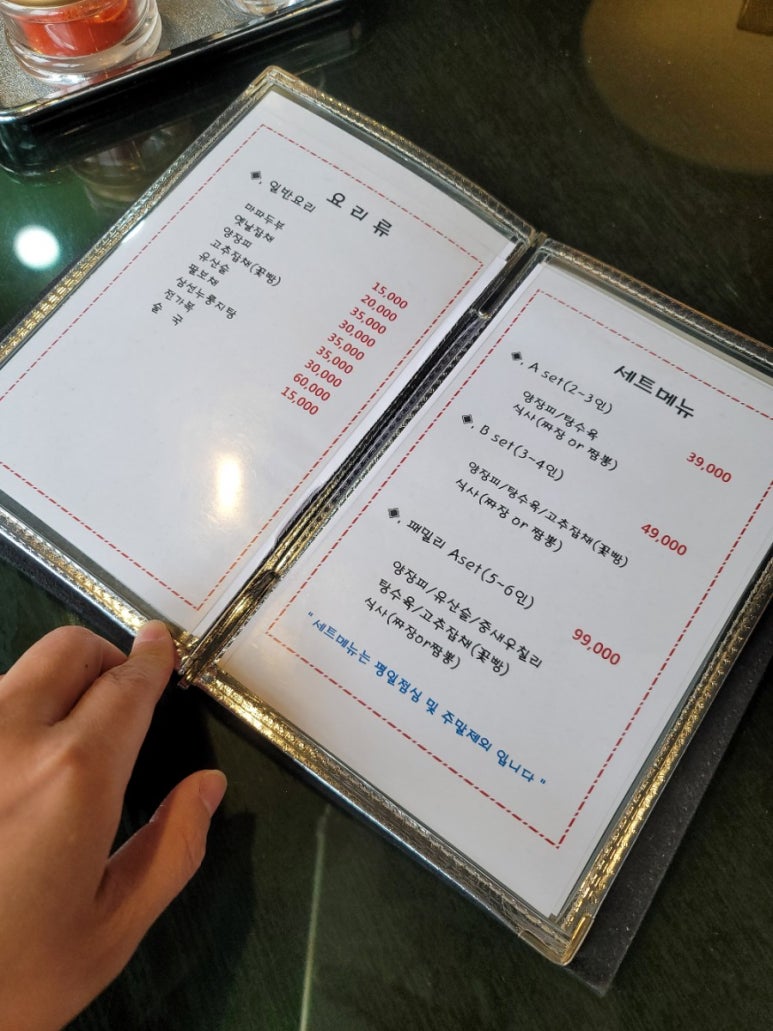 요 리 류
◈. 일반요리
마파두부 15,000
옛날잡채 20,000
양장피 35,000
고추잡채(꽃빵) 30,000
유산슬 35,000
팔보채 35,000
삼선누룽지탕 30,000
전가복 60,000
술 국 15,000
세트메뉴
◈. A set(2-3인)
양장피/탕수육
식사(짜장 or 짬뽕) 39,000
◈. B set(3-4인)
양장피/탕수육/고추잡채(꽃빵)
식사(짜장 or 짬뽕) 49,000
◈. 패밀리 Aset(5-6인)
양장피/유산슬/중새우칠리
탕수육/고추잡채(꽃빵)
식사(짜장or짬뽕) 99,000
" 세트메뉴는 평일점심 및 주말제외 입니다 "